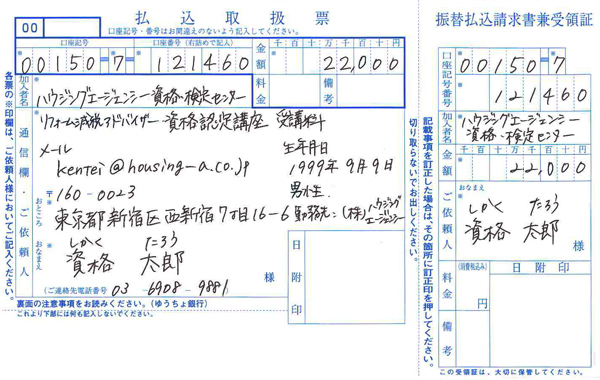 00
払込取扱票
口座記号・番号はお間違えのないよう記入してください。
口座記号
口座番号(右詰めで記入)
金額
千百十万千百十円
00150-7-121460
22,000
加入者名
ハウジングエージェンシー資格・検定センター
料金
備考
各票の※印欄は、ご依頼人様においてご記入ください。
通信欄・ご依頼人
リフォーム減税アドバイザー 資格認定講座 受講料
メール
生年月日
kentei@housing-a.co.jp
1999年9月9日
〒160-0023
男性
おところ
東京都新宿区西新宿7丁目16-6
勤務先:(株)ハウジングエージェンシー
おなまえ
しかく たろう
資格 太郎
様
(ご連絡先電話番号 03-6908-9881)
日附印
裏面の注意事項をお読みください。(ゆうちょ銀行)
これより下部には何も記入しないでください。
記載事項を訂正した場合は、その箇所に訂正印を押してください。
切り取らないでお出しください。
振替払込請求書兼受領証
口座記号番号
00150-7-
121460
加入者名
ハウジングエージェンシー
資格・検定センター
金額
千百十万千百十円
22,000
ご依頼人
おなまえ
しかく たろう
資格 太郎
様
料金
(消費税込み)
円
日附印
備考
この受領証は、大切に保管してください。